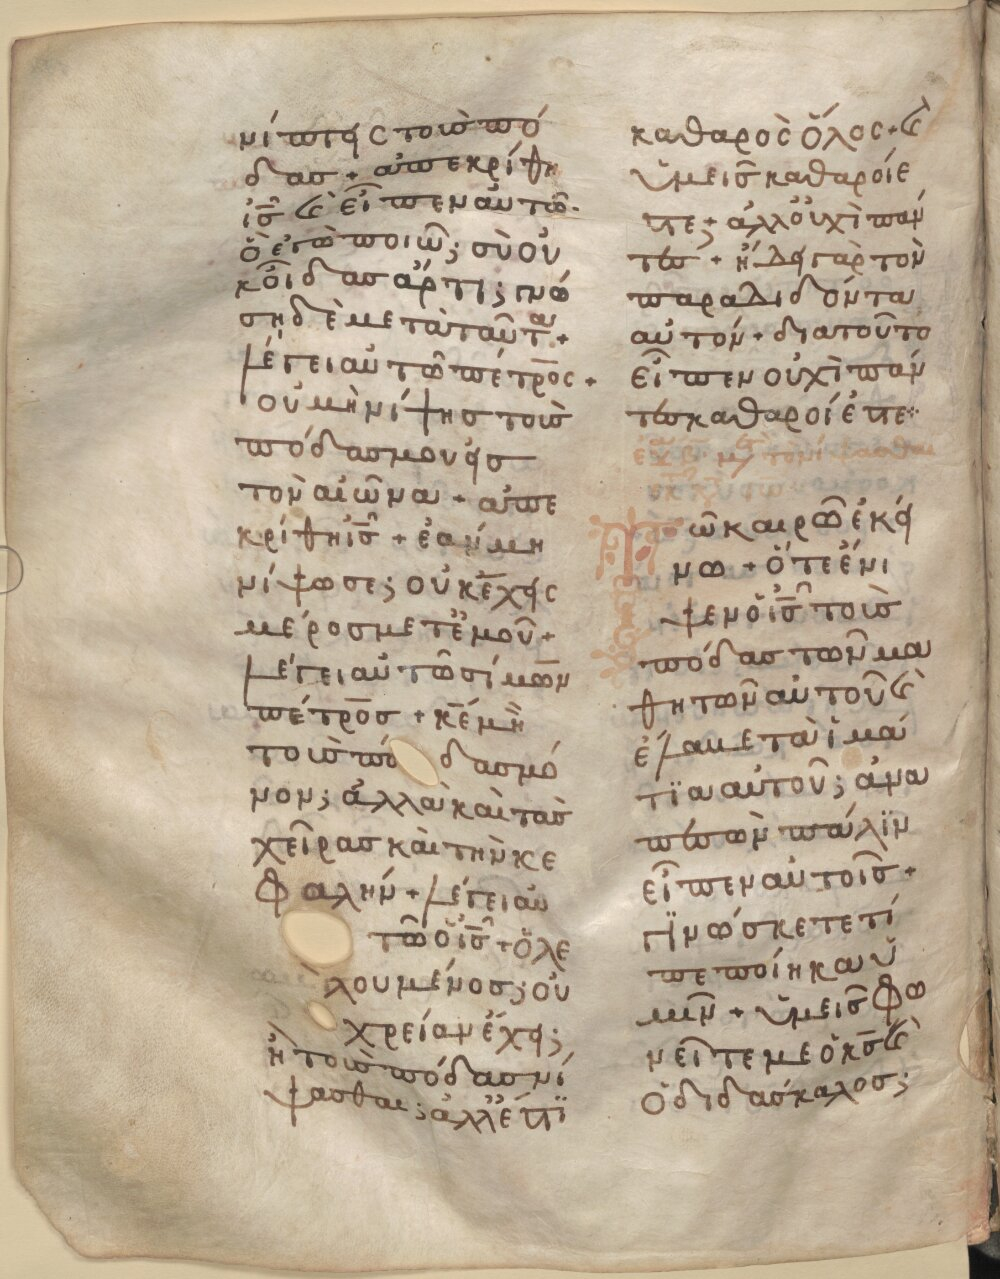 νίπτεις τοὺς πό
δας + ἀπεκρίθη
ἰς̅ κ(αὶ) εἶπεν αὐτῶ·
ὃ ἐγὼ ποιῶ; σὺ οὐ
κ οἶδας ἄρτι; γνώ
ση δὲ μετὰ ταῦτα +
λέγει αὐτῶ πέτρος +
οὐ μὴ νίψης τοὺς
πόδας μου εἰς
τὸν αἰῶνα + ἀπε
κρίθη ἰς̅ + ἐὰν μὴ
νίψω σε; οὐκ ἔχεις
μέρος μετ ἐμοῦ +
λέγει αὐτῶ σίμων
πέτρος + κε̅ μὴ
τοὺς πόδας μό
νον; ἀλλὰ καὶ τὰς
χεῖρας καὶ τὴν κε
φαλήν + λέγει αὐ
τῶ ὁ ἰς̅ + ὁ λε
λουμένος; οὐ
χρείαν ἔχει;
ἢ τοὺς πόδας νί
ψασθαι; ἀλλ ἔστι
καθαρὸς ὅλος + κ(αὶ)
ὑμεῖς καθαροί ἐ
στε; ἀλλ οὐχὶ πάν
τες + ἤδει γὰρ τὸν
παραδιδόντα
αὐτόν + διατοῦτο
εἶπεν οὐχὶ πάν
τες καθαροί ἐστε
Τῶ καιρῶ ἐκεί
νω + ὅτε ἔνι
ψεν ὁ ἰς̅ τοὺς
πόδας τῶν μα
θητῶν αὐτοῦ κ(αὶ)
ἔλαβε τὰ ἱμά
τϊα αὐτοῦ; ἀνα
πεσὼν πάλϊν
εἶπεν αὐτοῖς +
γϊνώσκετε τί
πεποίηκα ὑ
μῖν + ὑμεῖς φω
νεῖτέ με ὁ κς̅ κ(αὶ)
ὁ διδάσκαλος;